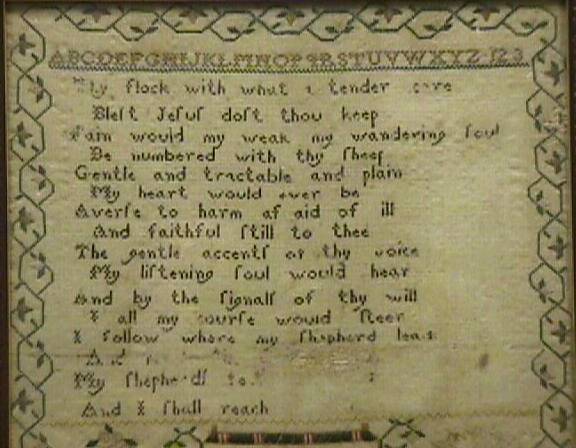 ABCDEFGHIJKLMNOPQRSTUVWXYZ 123
Thy flock with what a tender care
Bleſt Jeſuſ doſt thou keep
Fain would my weak my wandering ſoul
Be numbered with thy ſheep
Gentle and tractable and plain
My heart would ever be
Averſe to harm aſ aid of ill
And faithful ſtill to thee
The gentle accentſ of thy voice
My liſtening ſoul would hear
And by the ſignalſ of thy will
I all my courſe would ſteer
I follow where my ſhepherd leads
And
My ſhepherdſ
And I ſhall reach